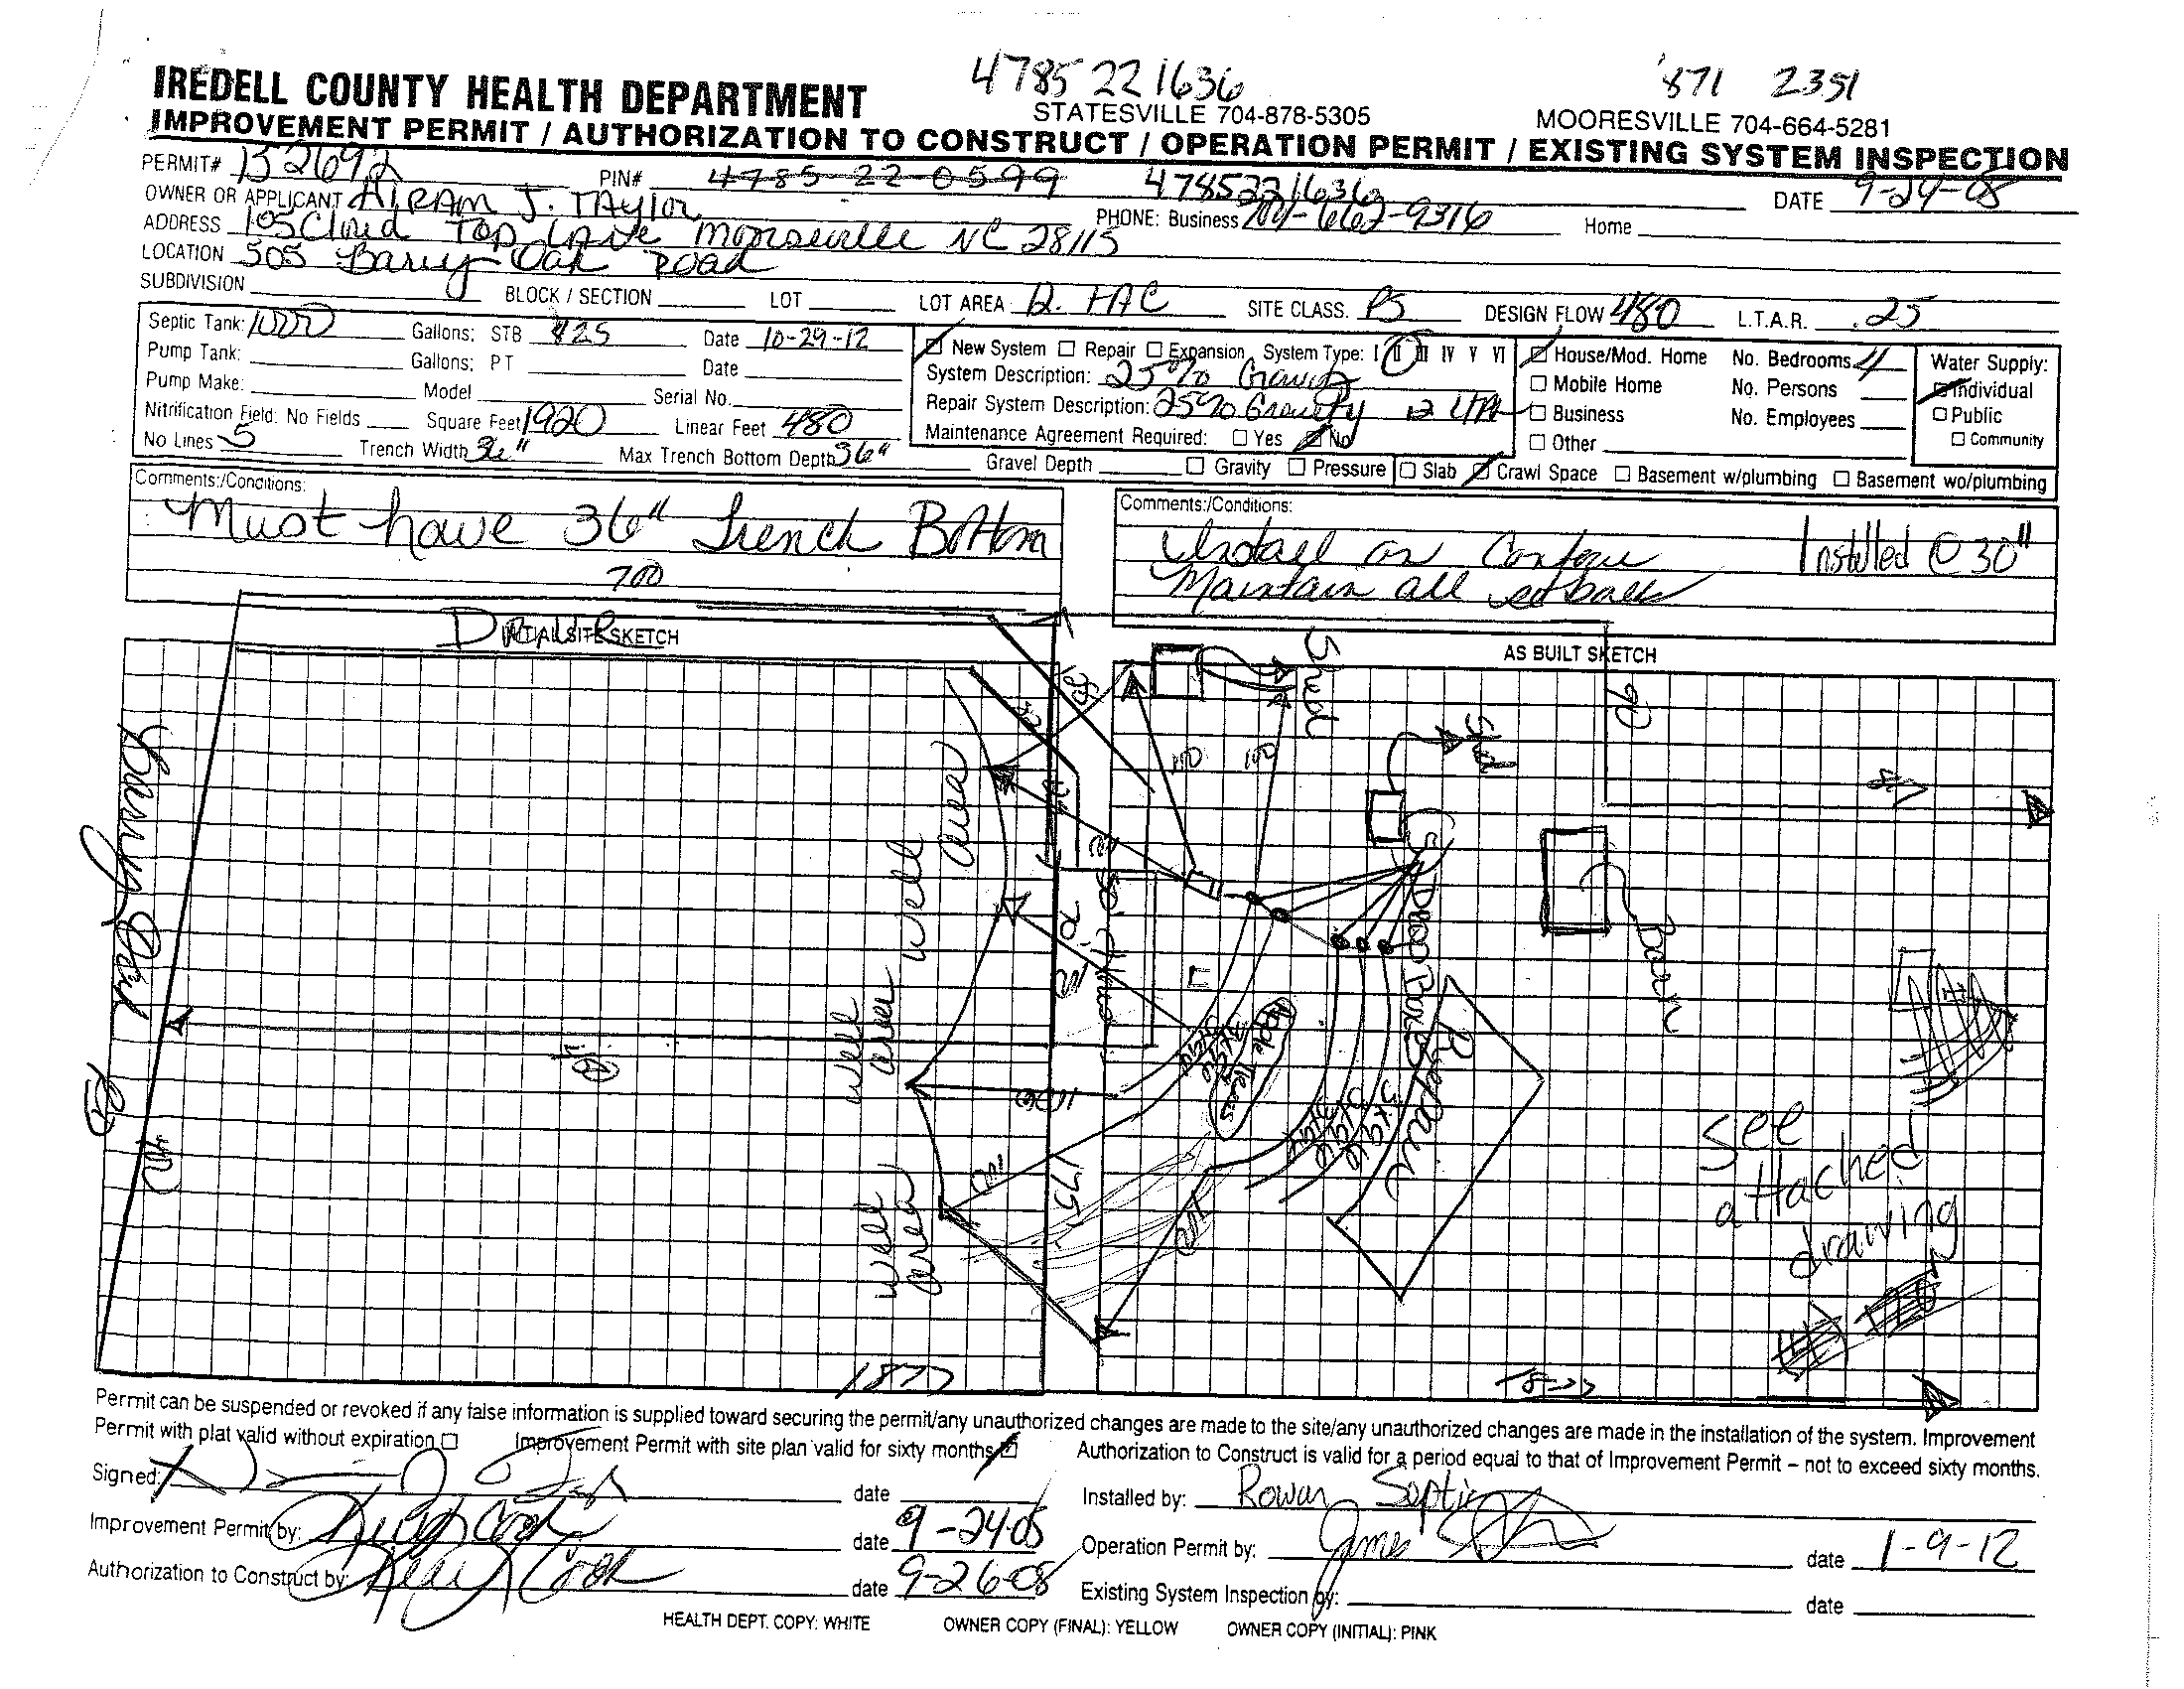 4785 221636
'871 2351
IREDELL COUNTY HEALTH DEPARTMENT
STATESVILLE 704-878-5305
MOORESVILLE 704-664-5281
IMPROVEMENT PERMIT / AUTHORIZATION TO CONSTRUCT / OPERATION PERMIT / EXISTING SYSTEM INSPECTION
PERMIT# B2692 PIN# 4785-22-0599 4785221636 DATE 9-24-08
OWNER OR APPLICANT HIRAM J. TAylor PHONE: Business 704-662-9316 Home
ADDRESS 105 Cloud Top LANE Mooresville NC 28115
LOCATION 505 Barry Oak Road
SUBDIVISION BLOCK / SECTION LOT LOT AREA SITE CLASS. PS DESIGN FLOW 480 L.T.A.R. .25
Septic Tank: 1000 Gallons: STB 825 Date 10-29-12
Pump Tank: Gallons: PT Date
Pump Make: Model Serial No.
Nitrification Field: No Fields Square Feet 1920 Linear Feet 480
No Lines 5 Trench Width 36" Max Trench Bottom Depth 36" Gravel Depth Gravity Pressure
New System Repair Expansion System Type: I II III IV V VI
System Description: 25% Gravity
Repair System Description: 25% Gravity
Maintenance Agreement Required: Yes No
House/Mod. Home No. Bedrooms 4
Mobile Home No. Persons
Business No. Employees
Other
Water Supply:
Individual
Public
Community
Slab Crawl Space Basement w/plumbing Basement wo/plumbing
Comments:/Conditions:
Must have 36" Trench Bottom
700
Comments:/Conditions:
Install on Contour Installed @ 30"
Maintain all setbacks
INITIAL SITE SKETCH
AS BUILT SKETCH
Barry Oak Rd
well area
well area
well area
well
Shed
Shed
90
100
100
D Box
Barn
Repair
175'
see
attached
drawing
1877
1877
Permit can be suspended or revoked if any false information is supplied toward securing the permit/any unauthorized changes are made to the site/any unauthorized changes are made in the installation of the system. Improvement
Permit with plat valid without expiration Improvement Permit with site plan valid for sixty months Authorization to Construct is valid for a period equal to that of Improvement Permit – not to exceed sixty months.
Signed: date
Installed by: Rowan Septic
Improvement Permit by: date 9-24-08
Operation Permit by: James date 1-9-12
Authorization to Construct by: date 9-26-08
Existing System Inspection by: date
HEALTH DEPT. COPY: WHITE OWNER COPY (FINAL): YELLOW OWNER COPY (INITIAL): PINK